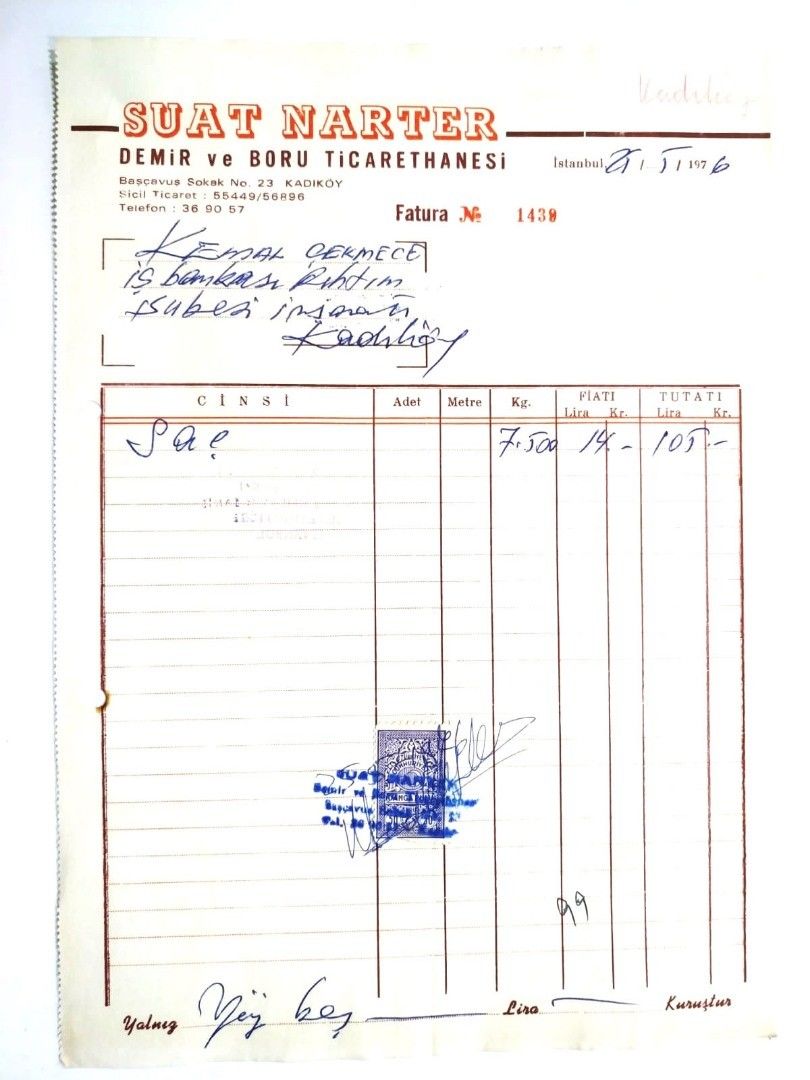 Kadıköy
SUAT NARTER
DEMİR ve BORU TİCARETHANESİ
İstanbul, 21 / I / 1976
Başçavuş Sokak No. 23 KADIKÖY
Sicil Ticaret : 55449/56896
Telefon : 36 90 57
Fatura № 1439
KEMAL ÇEKMECE
iş bankası Rıhtım
şubesi inşaatı
Kadıköy
CİNSİ Adet Metre Kg. FİATI TUTATI
Lira Kr. Lira Kr.
Saç 7.500 14.- 105.-
SUAT NARTER
Demir ve
Başçavuş
Tel. 36
99
Yalnız Yüz beş Lira Kuruştur